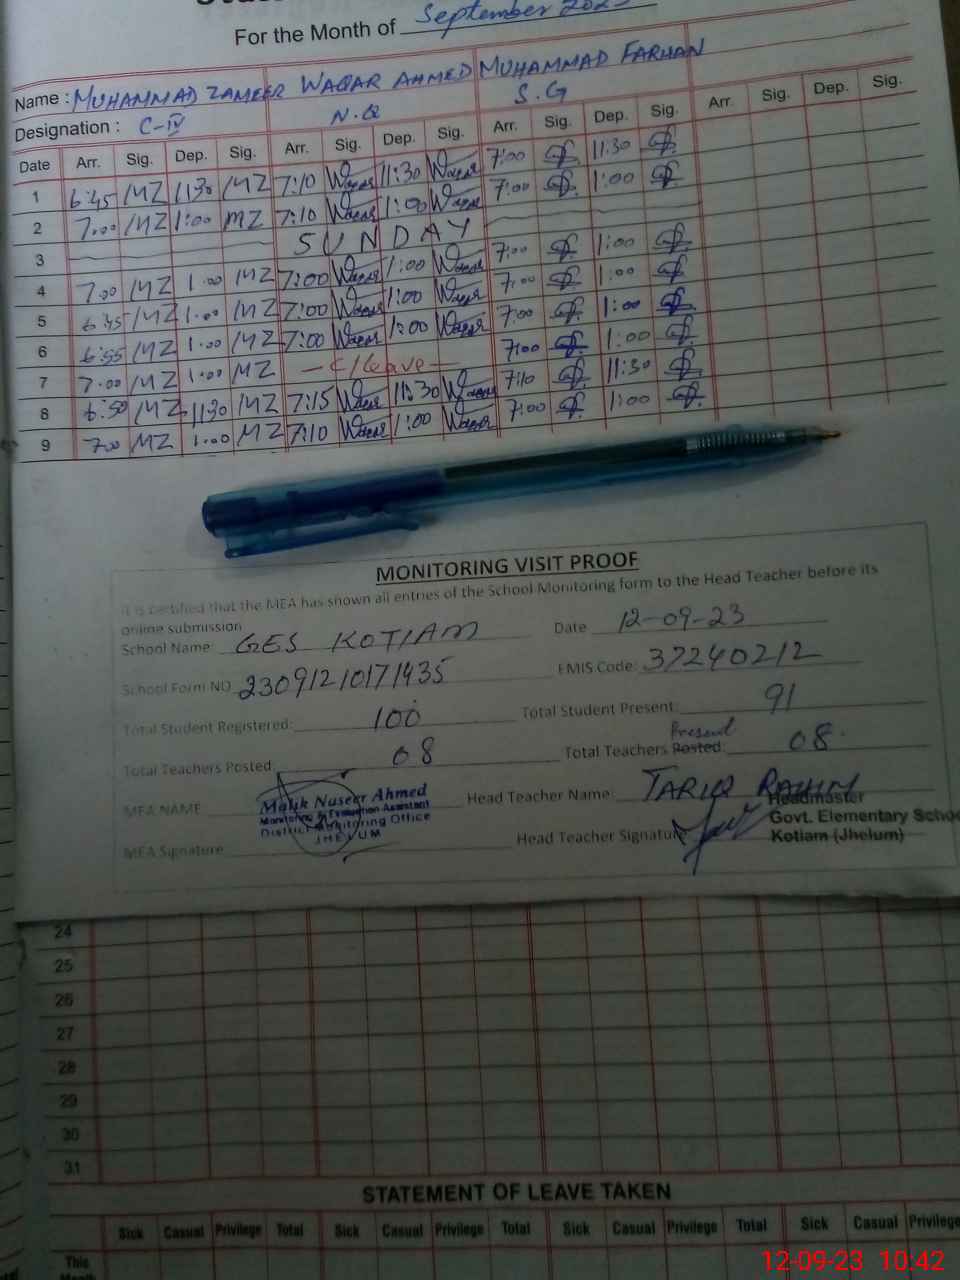 For the Month of September 2023
Name : MUHAMMAD ZAMEER WAQAR AHMED MUHAMMAD FARHAN
Designation : C-IV N.Q S.G
Date Arr. Sig. Dep. Sig. Arr. Sig. Dep. Sig. Arr. Sig. Dep. Sig. Arr. Sig. Dep. Sig.
1 6:45 MZ 1130 MZ 7:10 Waqar 11:30 Waqar 7:00 11:30
2 7:00 MZ 1:00 MZ 7:10 Waqar 1:00 Waqar 7:00 1:00
3 SUNDAY
4 7:00 MZ 1:00 MZ 7:00 Waqar 1:00 Waqar 7:00 1:00
5 6:45 MZ 1:00 MZ 7:00 Waqar 1:00 Waqar 7:00 1:00
6 6:55 MZ 1:00 MZ 7:00 Waqar 1:00 Waqar 7:00 1:00
7 7:00 MZ 1:00 MZ — C/Leave — 7:00 1:00
8 6:50 MZ 1130 MZ 7:15 Waqar 11:30 Waqar 7:10 11:30
9 700 MZ 1:00 MZ 7:10 Waqar 1:00 Waqar 7:00 1:00
MONITORING VISIT PROOF
It is certified that the MEA has shown all entries of the School Monitoring form to the Head Teacher before its
online submission
School Name: GES KOTIAM Date 12-09-23
School Form NO 23091210171435 EMIS Code: 37240212
Total Student Registered: 100 Total Student Present: 91
Total Teachers Posted: 08 Total Teachers Posted: Present 08
MEA NAME Malik Naseer Ahmed Head Teacher Name: TARIQ RAHIM
Monitoring & Evaluation Assistant Headmaster
District Monitoring Office Govt. Elementary Schoo
JHELUM Kotiam (Jhelum)
MEA Signature Head Teacher Signature:
24
25
26
27
28
29
30
31
STATEMENT OF LEAVE TAKEN
Sick Casual Privilege Total Sick Casual Privilege Total Sick Casual Privilege Total Sick Casual Privilege
This
Month
12-09-23 10:42